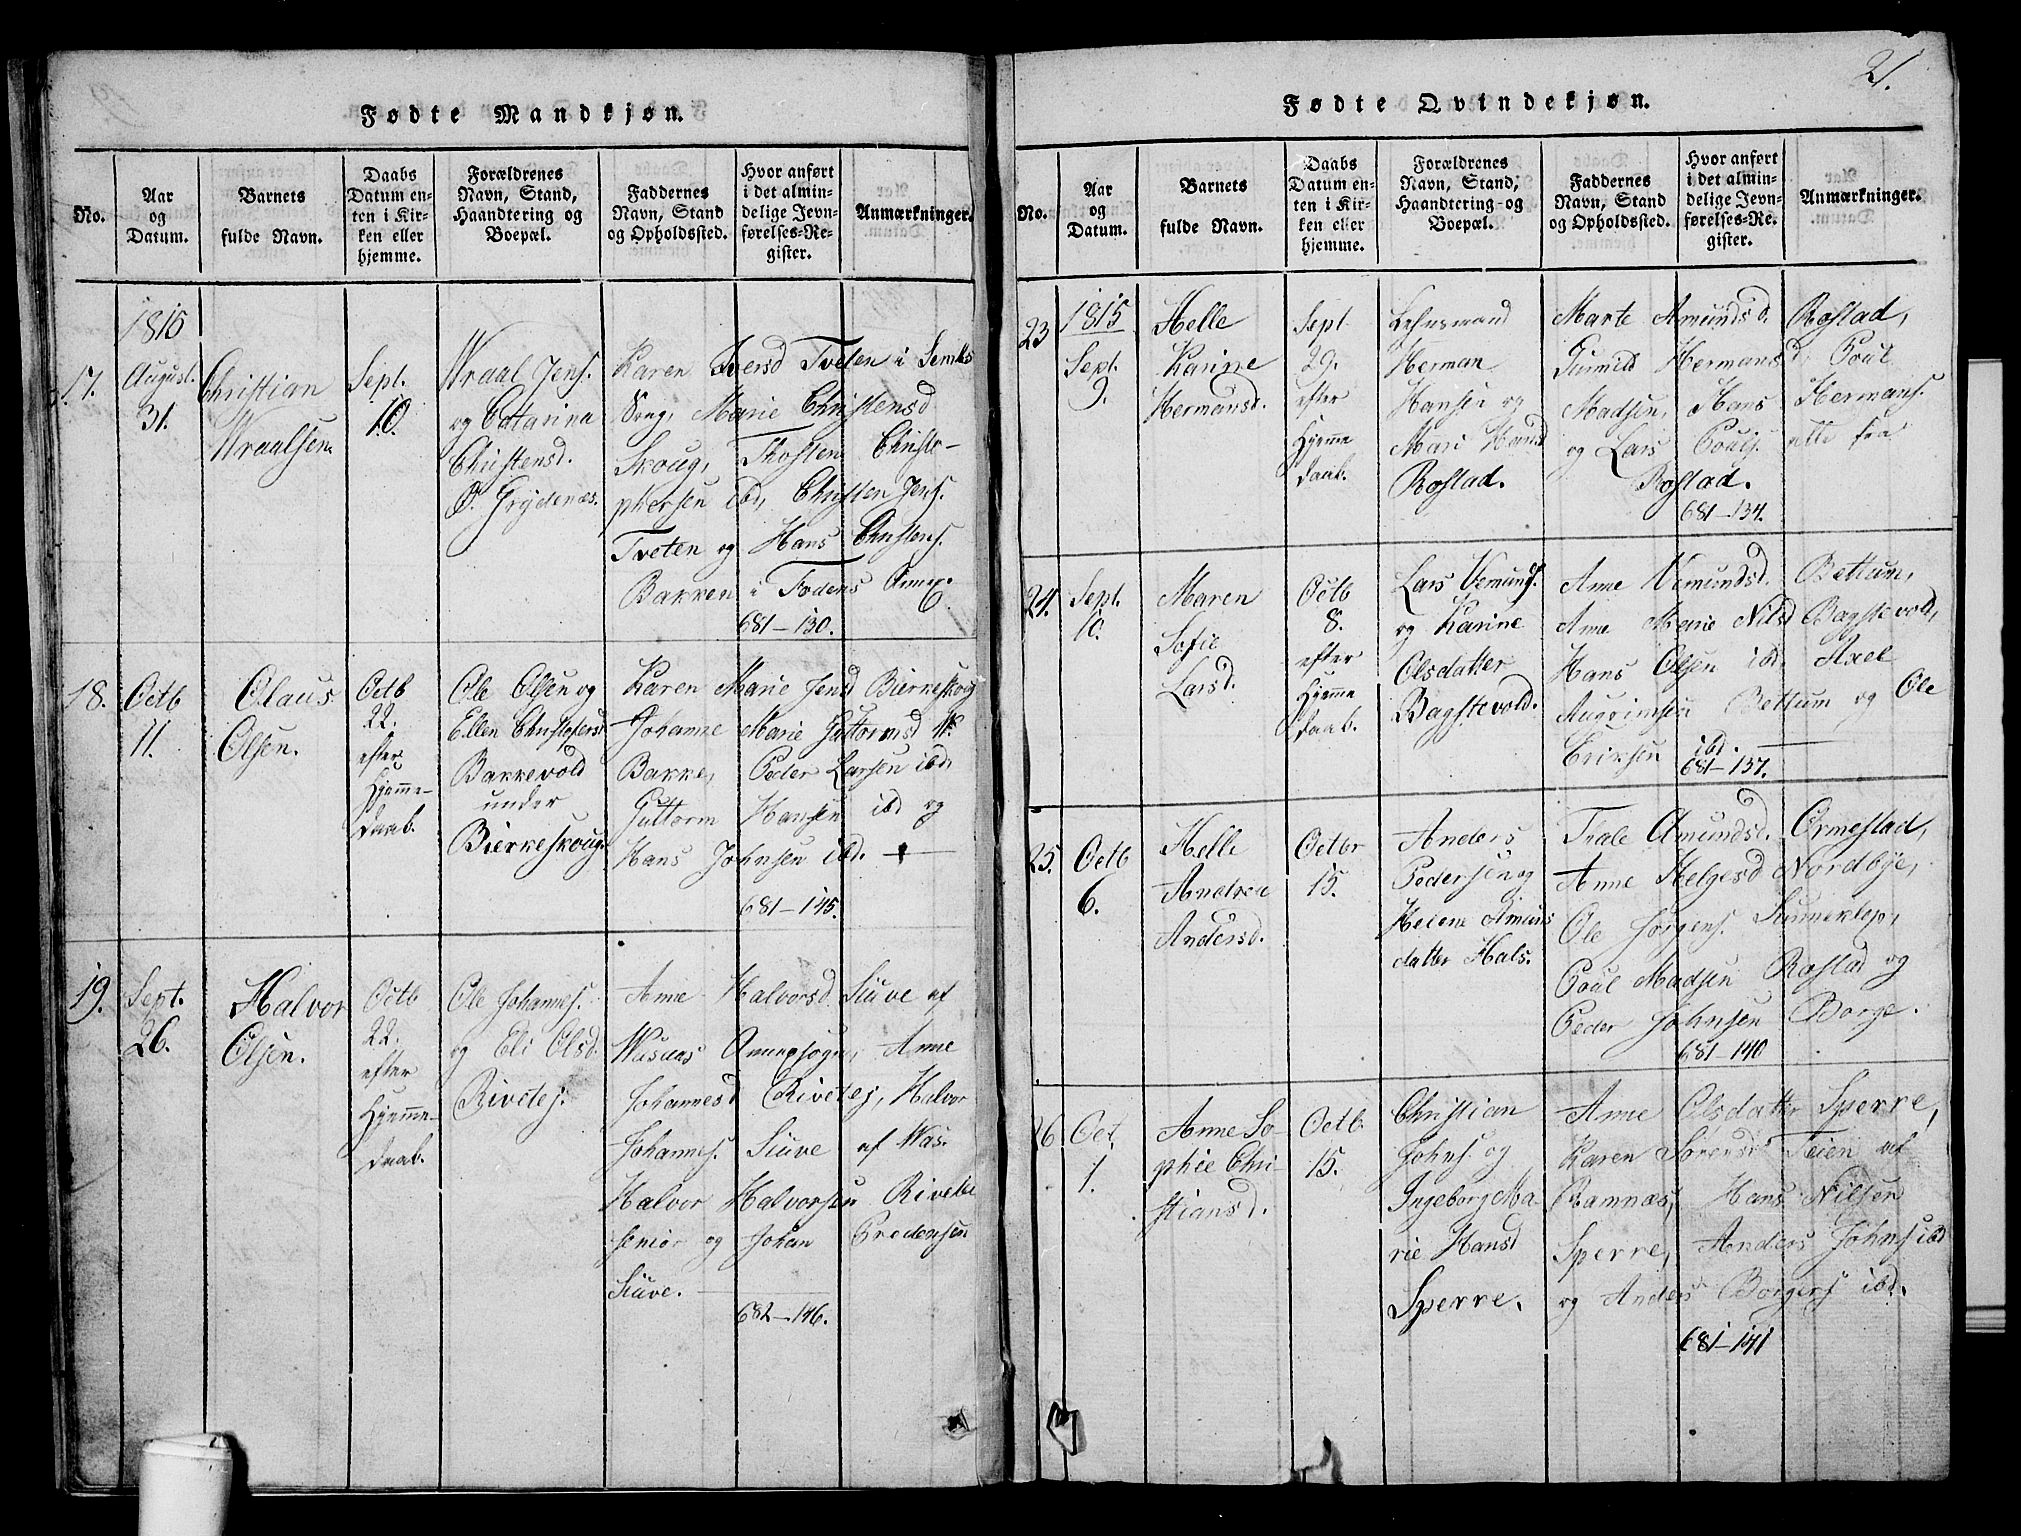 Fødte Mandkjøn.
No.
Aar
og
Datum.
Barnets
fulde Navn.
Daabs
Datum en-
ten i Kir-
ken eller
hjemme.
Forældrenes
Navn, Stand,
Haandtering og
Boepæl.
Faddernes
Navn, Stand
og Opholdssted.
Hvor anført
i det almin-
delige Jevn-
førelses-Re-
gister.
Anmærkninger.
17.
1815
August
31.
Christian
Wraalsen
Sept.
10.
Wraal Jens.
og Catarina
Christensd.
Ø. Grydenæs.
Karen Iversd Tveten i Sembs
Sogn, Marie Christensd
Skoug, Thosten Christo-
phersen ibd, Christen Jens.
Tveten og Hans Christens.
Bakken i Fodens Annex.
681-130.
18.
Octb
11.
Olaus
Olsen.
Octb
22.
efter
Hjemme-
daab.
Ole Olsen og
Ellen Christofersd
Bakkevold
under
Bierkeskoug.
Karen Marie Jensd Bierkeskoug
Johanne Marie Guttormsd
Bakke, Peder Larsen ibd,
Guttorm Hansen ibd og
Hans Johnsen ibd.
681-145.
19.
Sept.
26.
Halvor
Olsen.
Octb
22.
efter
Hjemme-
daab.
Ole Johannes.
og Eli Olsd.
Rivetej.
Anne Halvorsd Siuve af
Annexsogn, Anne
Johannesd Rivetej, Halvor
Johannes. Siuve af Was.
Halvor Halvorsen Rivetei
senior og Johan Predensen
Siuve.
682-146.
21.
Fødte Qvindekjøn.
No.
Aar
og
Datum.
Barnets
fulde Navn.
Daabs
Datum en-
ten i Kir-
ken eller
hjemme.
Forældrenes
Navn, Stand,
Haandtering og
Boepæl.
Faddernes
Navn, Stand
og Opholdssted.
Hvor anført
i det almin-
delige Jevn-
førelses-Re-
gister.
Anmærkninger.
23
1815
Sept.
9.
Helle
Karine
Hermansd.
Sept
29.
efter
Hjemme
daab.
Lehnsmand
Herman
Hansen og
Mari Hansd
Rostad.
Marte Amundsd. Rostad,
Gunnild Hermansd, Poul
Madsen, Hans Hermans.
og Lars Pouls. alle fra
Rostad.
681-134.
24.
Sept.
10.
Maren
Sofie
Larsd.
Octb
8.
efter
Hjemme
daab.
Lars Vemunds.
og Karine
Olsdatter
Bagstevold.
Anne Vemundsd. Bettum,
Anne Marie Nilsd Bagstevold,
Hans Olsen ibd, Axel
Augrimsen Bettum og Ole
Eriksen ibd.
681-137.
25.
Octb
6.
Helle
Andrea
Andersd.
Octbr
15.
Anders
Pedersen og
Helene Amuns
datter Hals.
Trale Amundsd. Ormestad,
Anne Helgesd Nordbye,
Ole Jørgens. Sumeklep,
Poul Madsen Rostad og
Peder Johnsen Borge.
681-140
26
Oct
1.
Anne So-
phie Chri-
stiansd.
Octb.
15.
Christian
Johns. og
Ingeborg Ma-
rie Hansd
Sperre.
Anne Olsdatter Sperre,
Karen Sørensd Teien af
Ramnæs, Hans Nilsen
Sperre, Anders Johns ibd
og Anders Borgers ibd.
681-141